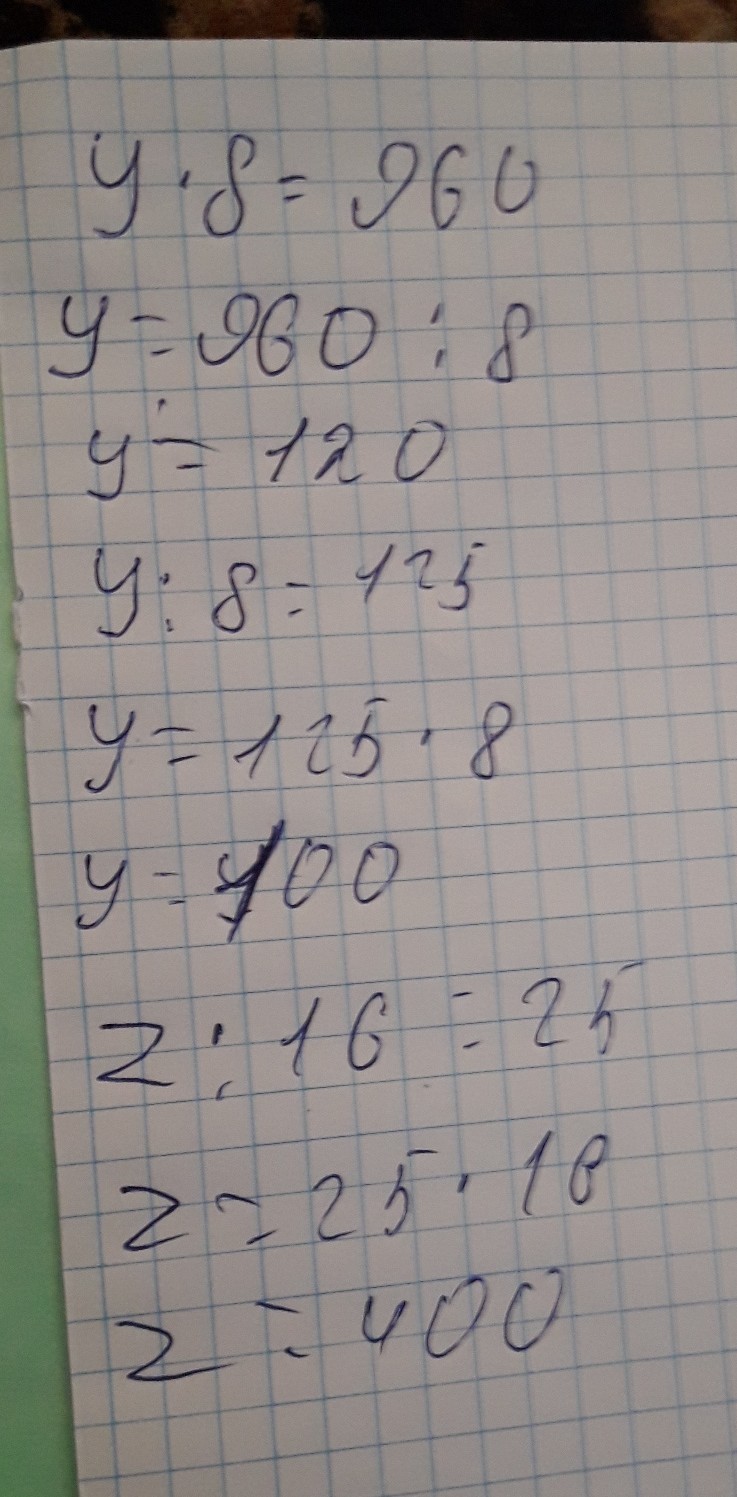 y · 8 = 960
y = 960 : 8
y = 120
y : 8 = 125
y = 125 · 8
y = 100
z : 16 = 25
z = 25 · 16
z = 400